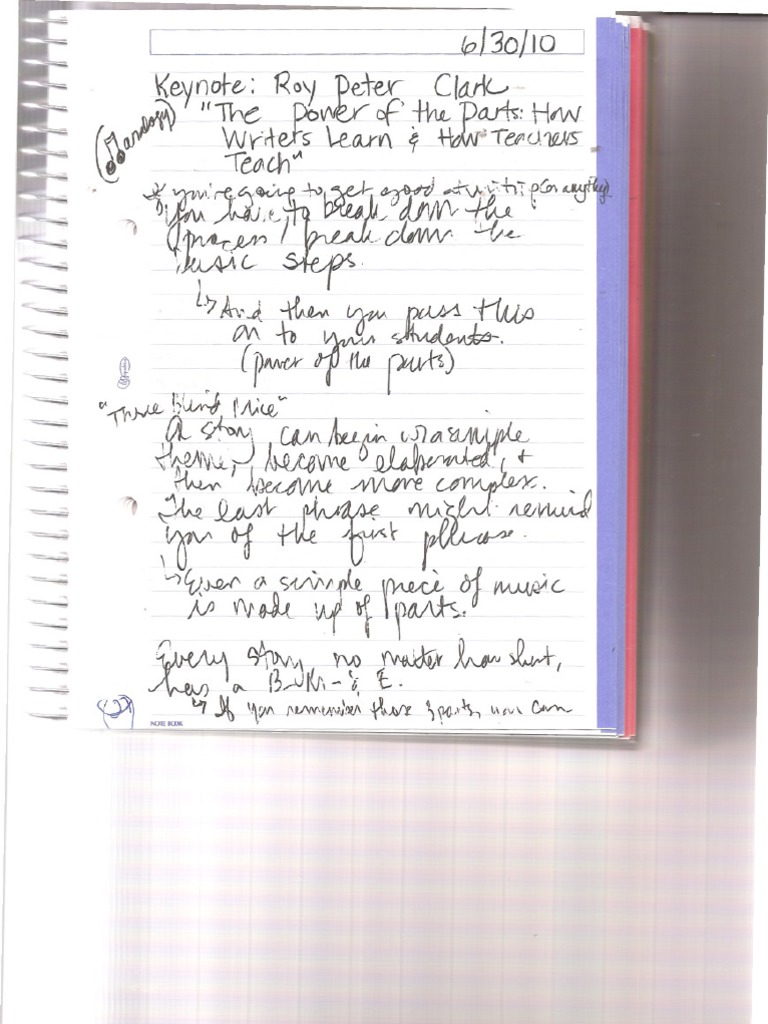 6/30/10
Keynote: Roy Peter Clark
(analogy) "The Power of the Parts: How
Writers Learn & How Teachers
Teach"
If you're going to get good at writing (or anything)
you have to break down the
process / break down the
basic steps.
↳ And then you pass this
on to your students.
(power of the parts)
"Three Blind Mice"
A story can begin w/ a simple
theme, become elaborated, +
then become more complex.
The last phrase might remind
you of the first phrase.
↳ Even a simple piece of music
is made up of parts.
Every story, no matter how short,
has a B-M- & E.
↳ If you remember those 3 parts, you can
NOTE BOOK